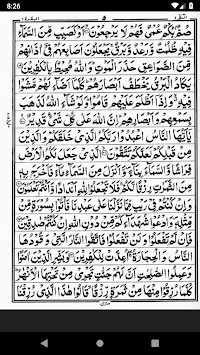 8:26
البقرة ٢
٥
الٓمّٓ ١
صُمٌّۢ بُكْمٌ عُمْيٌ فَهُمْ لَا يَرْجِعُوْنَ ۙ اَوْ كَصَيِّبٍ مِّنَ السَّمَآءِ
فِيْهِ ظُلُمٰتٌ وَّرَعْدٌ وَّبَرْقٌ ۚ يَجْعَلُوْنَ اَصَابِعَهُمْ فِيْٓ اٰذَانِهِمْ
مِّنَ الصَّوَاعِقِ حَذَرَ الْمَوْتِ ؕ وَاللّٰهُ مُحِيْطٌۢ بِالْكٰفِرِيْنَ
يَكَادُ الْبَرْقُ يَخْطَفُ اَبْصَارَهُمْ ؕ كُلَّمَآ اَضَآءَ لَهُمْ مَّشَوْا
فِيْهِ ۙ وَاِذَآ اَظْلَمَ عَلَيْهِمْ قَامُوْا ؕ وَلَوْ شَآءَ اللّٰهُ لَذَهَبَ
بِسَمْعِهِمْ وَاَبْصَارِهِمْ ؕ اِنَّ اللّٰهَ عَلٰى كُلِّ شَيْءٍ قَدِيْرٌ
يٰٓاَيُّهَا النَّاسُ اعْبُدُوْا رَبَّكُمُ الَّذِيْ خَلَقَكُمْ وَالَّذِيْنَ مِنْ
قَبْلِكُمْ لَعَلَّكُمْ تَتَّقُوْنَ ۙ الَّذِيْ جَعَلَ لَكُمُ الْاَرْضَ
فِرَاشًا وَّالسَّمَآءَ بِنَآءً ۪ وَّاَنْزَلَ مِنَ السَّمَآءِ مَآءً فَاَخْرَجَ بِهٖ
مِنَ الثَّمَرٰتِ رِزْقًا لَّكُمْ ۚ فَلَا تَجْعَلُوْا لِلّٰهِ اَنْدَادًا وَّاَنْتُمْ
تَعْلَمُوْنَ وَاِنْ كُنْتُمْ فِيْ رَيْبٍ مِّمَّا نَزَّلْنَا عَلٰى عَبْدِنَا فَاْتُوْا بِسُوْرَةٍ مِّنْ
مِّثْلِهٖ ۪ وَادْعُوْا شُهَدَآءَكُمْ مِّنْ دُوْنِ اللّٰهِ اِنْ كُنْتُمْ صٰدِقِيْنَ
فَاِنْ لَّمْ تَفْعَلُوْا وَلَنْ تَفْعَلُوْا فَاتَّقُوا النَّارَ الَّتِيْ وَقُوْدُهَا
النَّاسُ وَالْحِجَارَةُ ۚ اُعِدَّتْ لِلْكٰفِرِيْنَ وَبَشِّرِ الَّذِيْنَ اٰمَنُوْا
وَعَمِلُوا الصّٰلِحٰتِ اَنَّ لَهُمْ جَنّٰتٍ تَجْرِيْ مِنْ تَحْتِهَا الْاَنْهٰرُ ؕ
كُلَّمَا رُزِقُوْا مِنْهَا مِنْ ثَمَرَةٍ رِّزْقًا ۙ قَالُوْا هٰذَا الَّذِيْ رُزِقْنَا